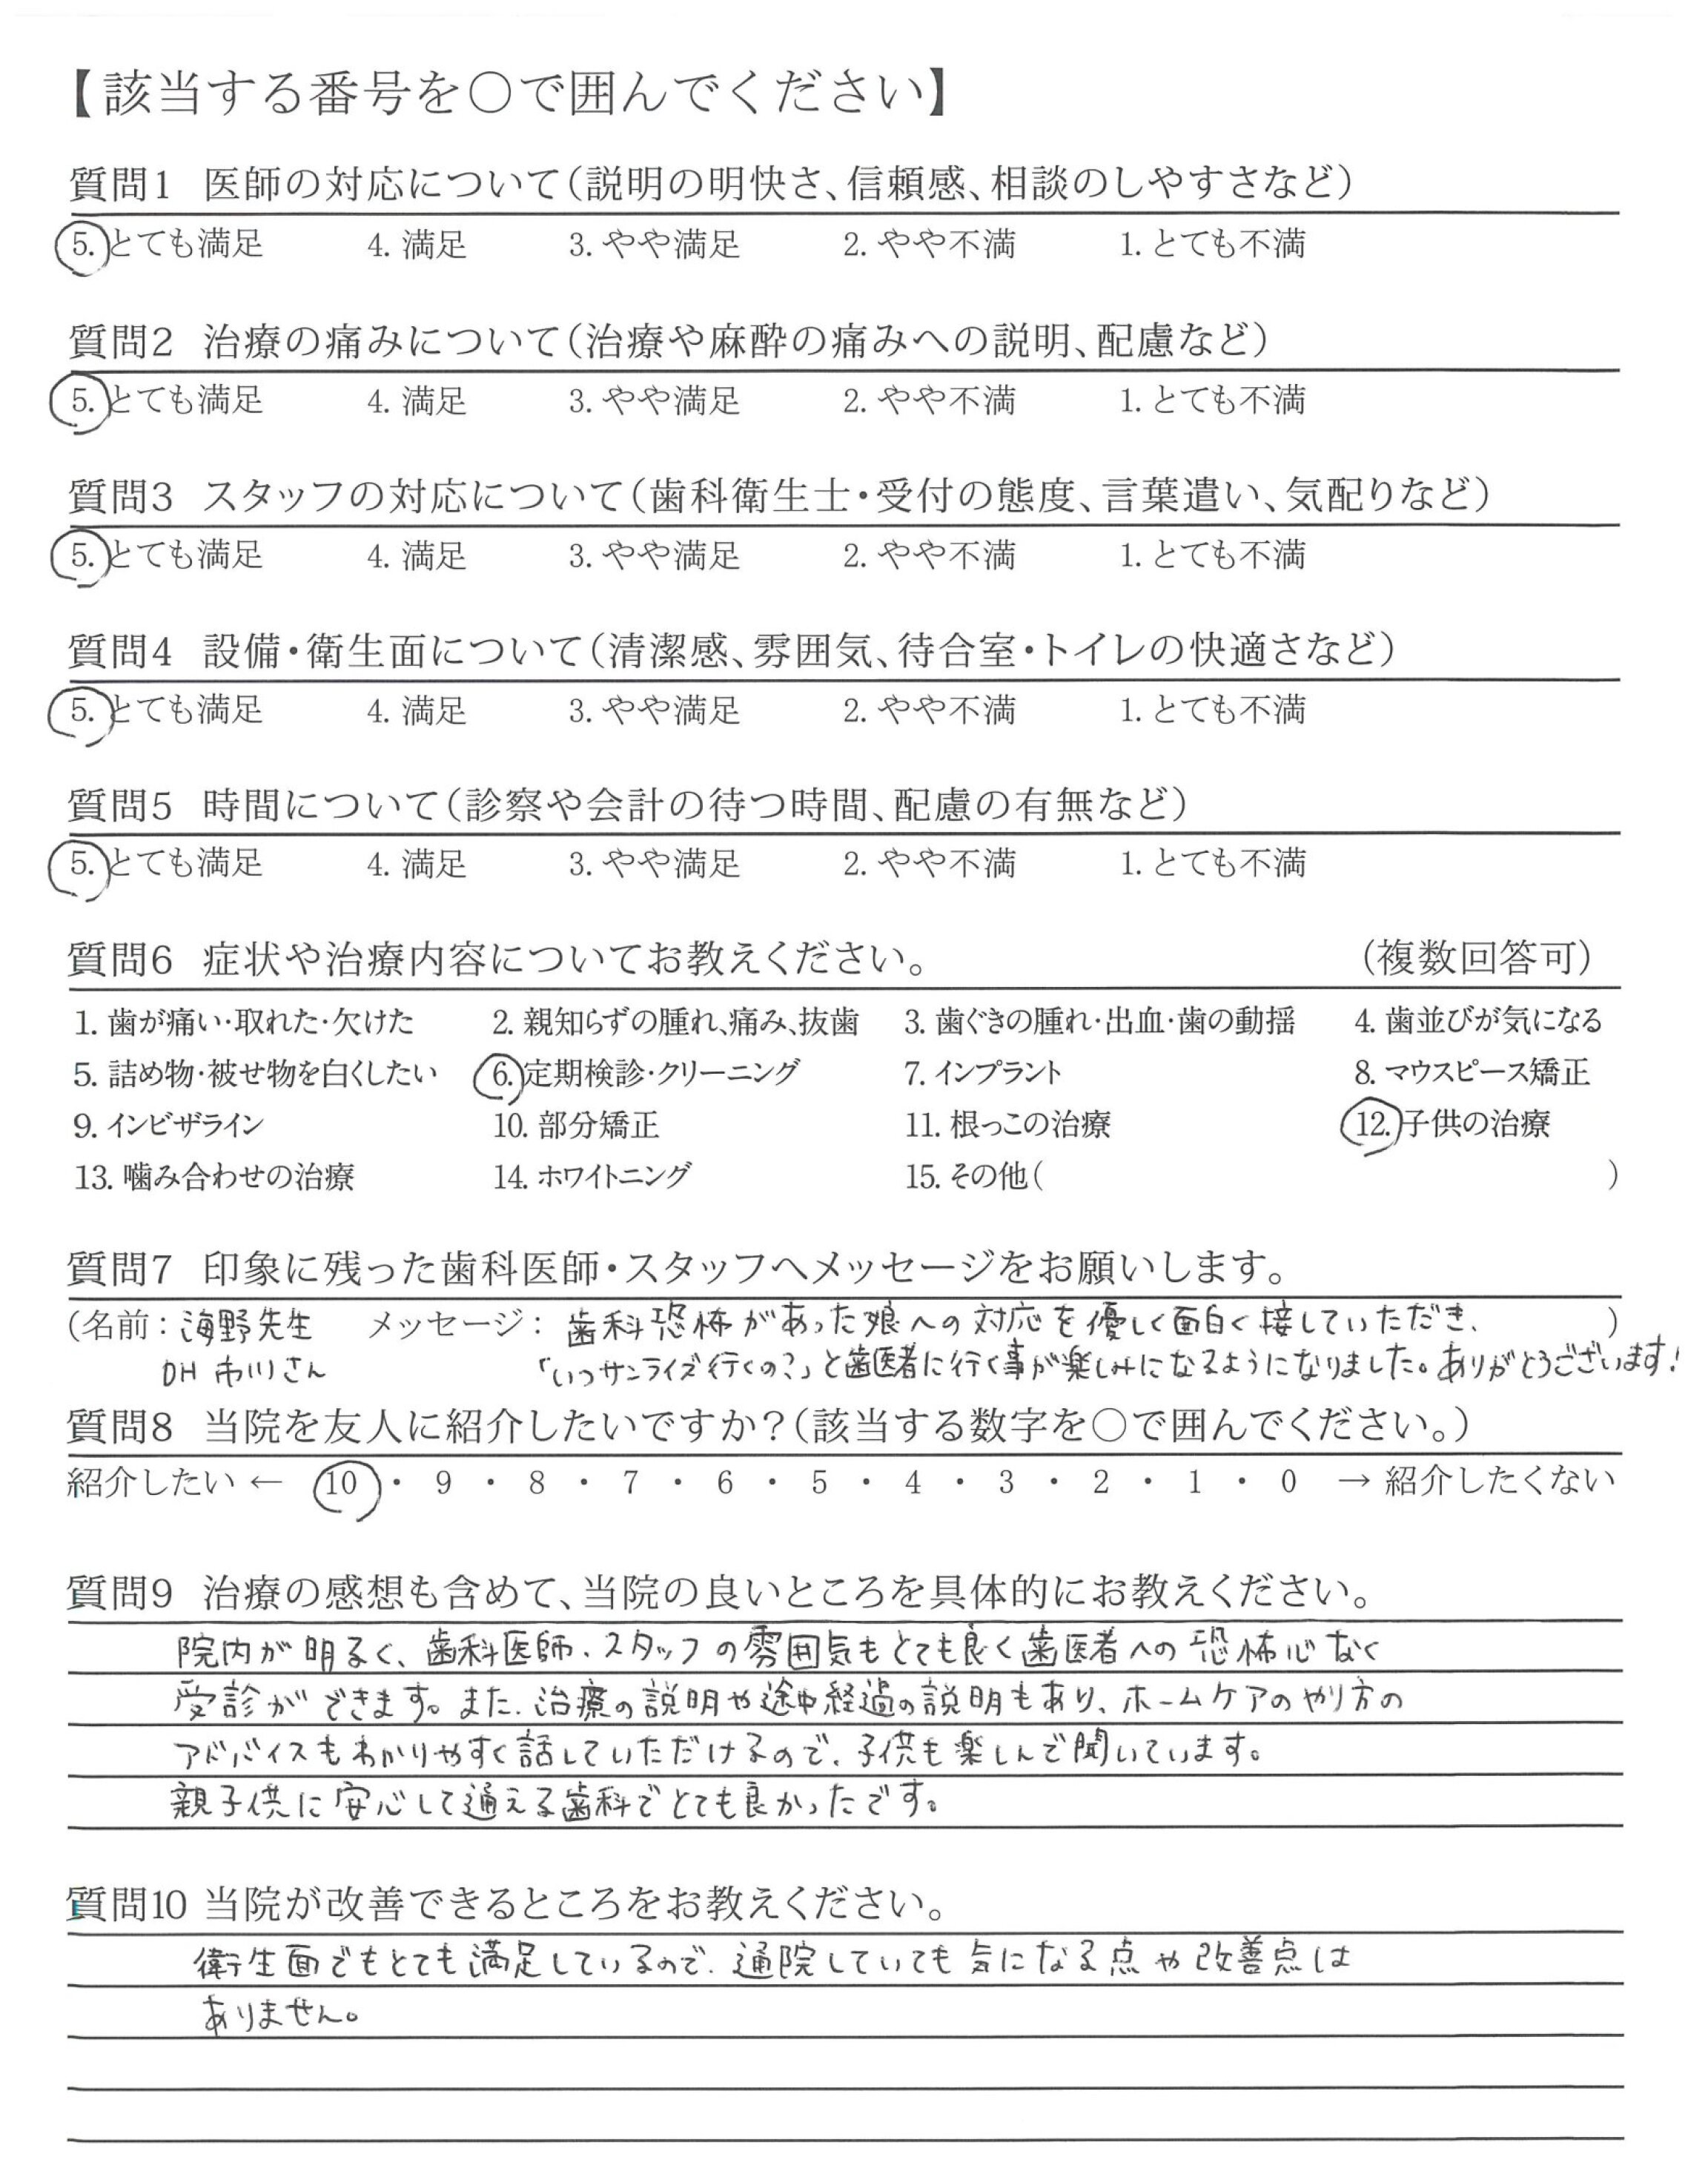 【該当する番号を○で囲んでください】
質問1 医師の対応について(説明の明快さ、信頼感、相談のしやすさなど)
5. とても満足 4. 満足 3. やや満足 2. やや不満 1. とても不満
質問2 治療の痛みについて(治療や麻酔の痛みへの説明、配慮など)
5. とても満足 4. 満足 3. やや満足 2. やや不満 1. とても不満
質問3 スタッフの対応について(歯科衛生士・受付の態度、言葉遣い、気配りなど)
5. とても満足 4. 満足 3. やや満足 2. やや不満 1. とても不満
質問4 設備・衛生面について(清潔感、雰囲気、待合室・トイレの快適さなど)
5. とても満足 4. 満足 3. やや満足 2. やや不満 1. とても不満
質問5 時間について(診察や会計の待つ時間、配慮の有無など)
5. とても満足 4. 満足 3. やや満足 2. やや不満 1. とても不満
質問6 症状や治療内容についてお教えください。 (複数回答可)
1. 歯が痛い・取れた・欠けた 2. 親知らずの腫れ、痛み、抜歯 3. 歯ぐきの腫れ・出血・歯の動揺 4. 歯並びが気になる
5. 詰め物・被せ物を白くしたい 6. 定期検診・クリーニング 7. インプラント 8. マウスピース矯正
9. インビザライン 10. 部分矯正 11. 根っこの治療 12. 子供の治療
13. 噛み合わせの治療 14. ホワイトニング 15. その他( )
質問7 印象に残った歯科医師・スタッフへメッセージをお願いします。
(名前：海野先生 メッセージ：歯科恐怖があった娘への対応を優しく面白く接していただき、 )
DH 市川さん 「いつサンライズ行くの?」と歯医者に行く事が楽しみになるようになりました。ありがとうございます!
質問8 当院を友人に紹介したいですか?(該当する数字を○で囲んでください。)
紹介したい ← 10 ・ 9 ・ 8 ・ 7 ・ 6 ・ 5 ・ 4 ・ 3 ・ 2 ・ 1 ・ 0 → 紹介したくない
質問9 治療の感想も含めて、当院の良いところを具体的にお教えください。
院内が明るく、歯科医師、スタッフの雰囲気もとても良く歯医者への恐怖心なく
受診ができます。また、治療の説明や途中経過の説明もあり、ホームケアのやり方の
アドバイスもわかりやすく話していただけるので、子供も楽しんで聞いています。
親子供に安心して通える歯科でとても良かったです。
質問10 当院が改善できるところをお教えください。
衛生面でもとても満足しているので、通院していても気になる点や改善点は
ありません。